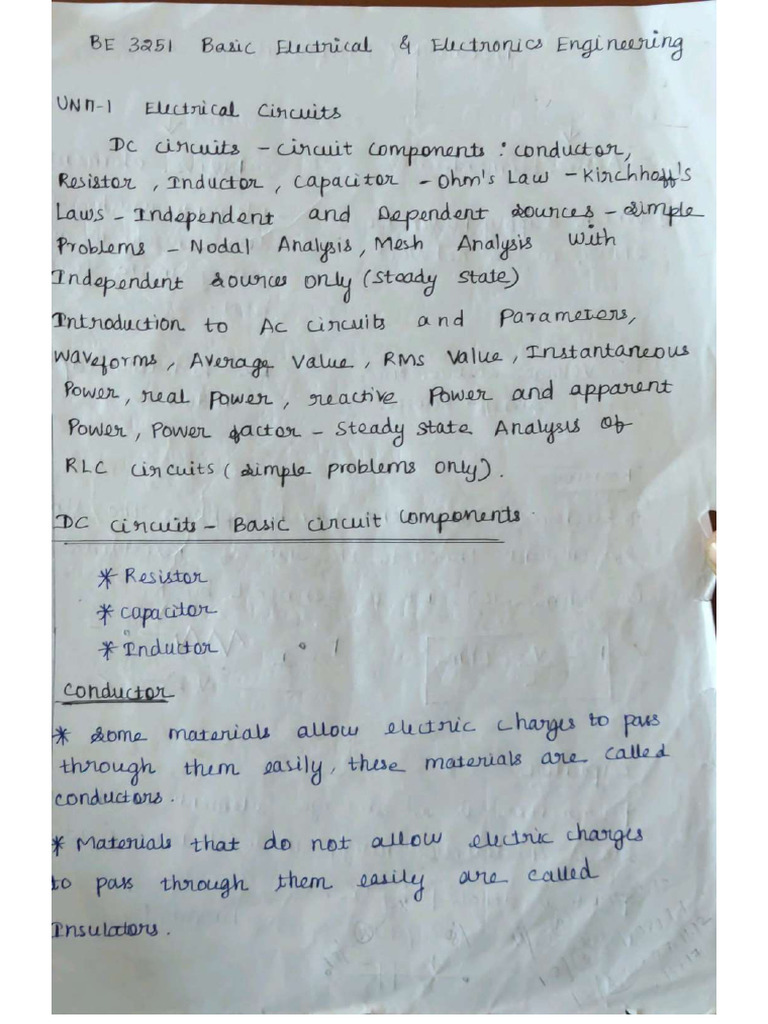 BE 3251 Basic Electrical & Electronics Engineering
UNIT-1 Electrical Circuits
DC circuits - circuit components : conductor,
Resistor, Inductor, Capacitor - Ohm's Law - Kirchhoff's
Laws - Independent and Dependent sources - simple
Problems - Nodal Analysis, Mesh Analysis with
Independent sources only (Steady State)
Introduction to Ac circuits and Parameters,
waveforms, Average Value, RMS Value, Instantaneous
Power, real power, reactive Power and apparent
Power, Power factor - Steady state Analysis of
RLC circuits (simple problems only).
DC circuits - Basic circuit components.
* Resistor
* capacitor
* Inductor
conductor
* some materials allow electric charges to pass
through them easily, these materials are called
conductors.
* Materials that do not allow electric charges
to pass through them easily are called
Insulators.